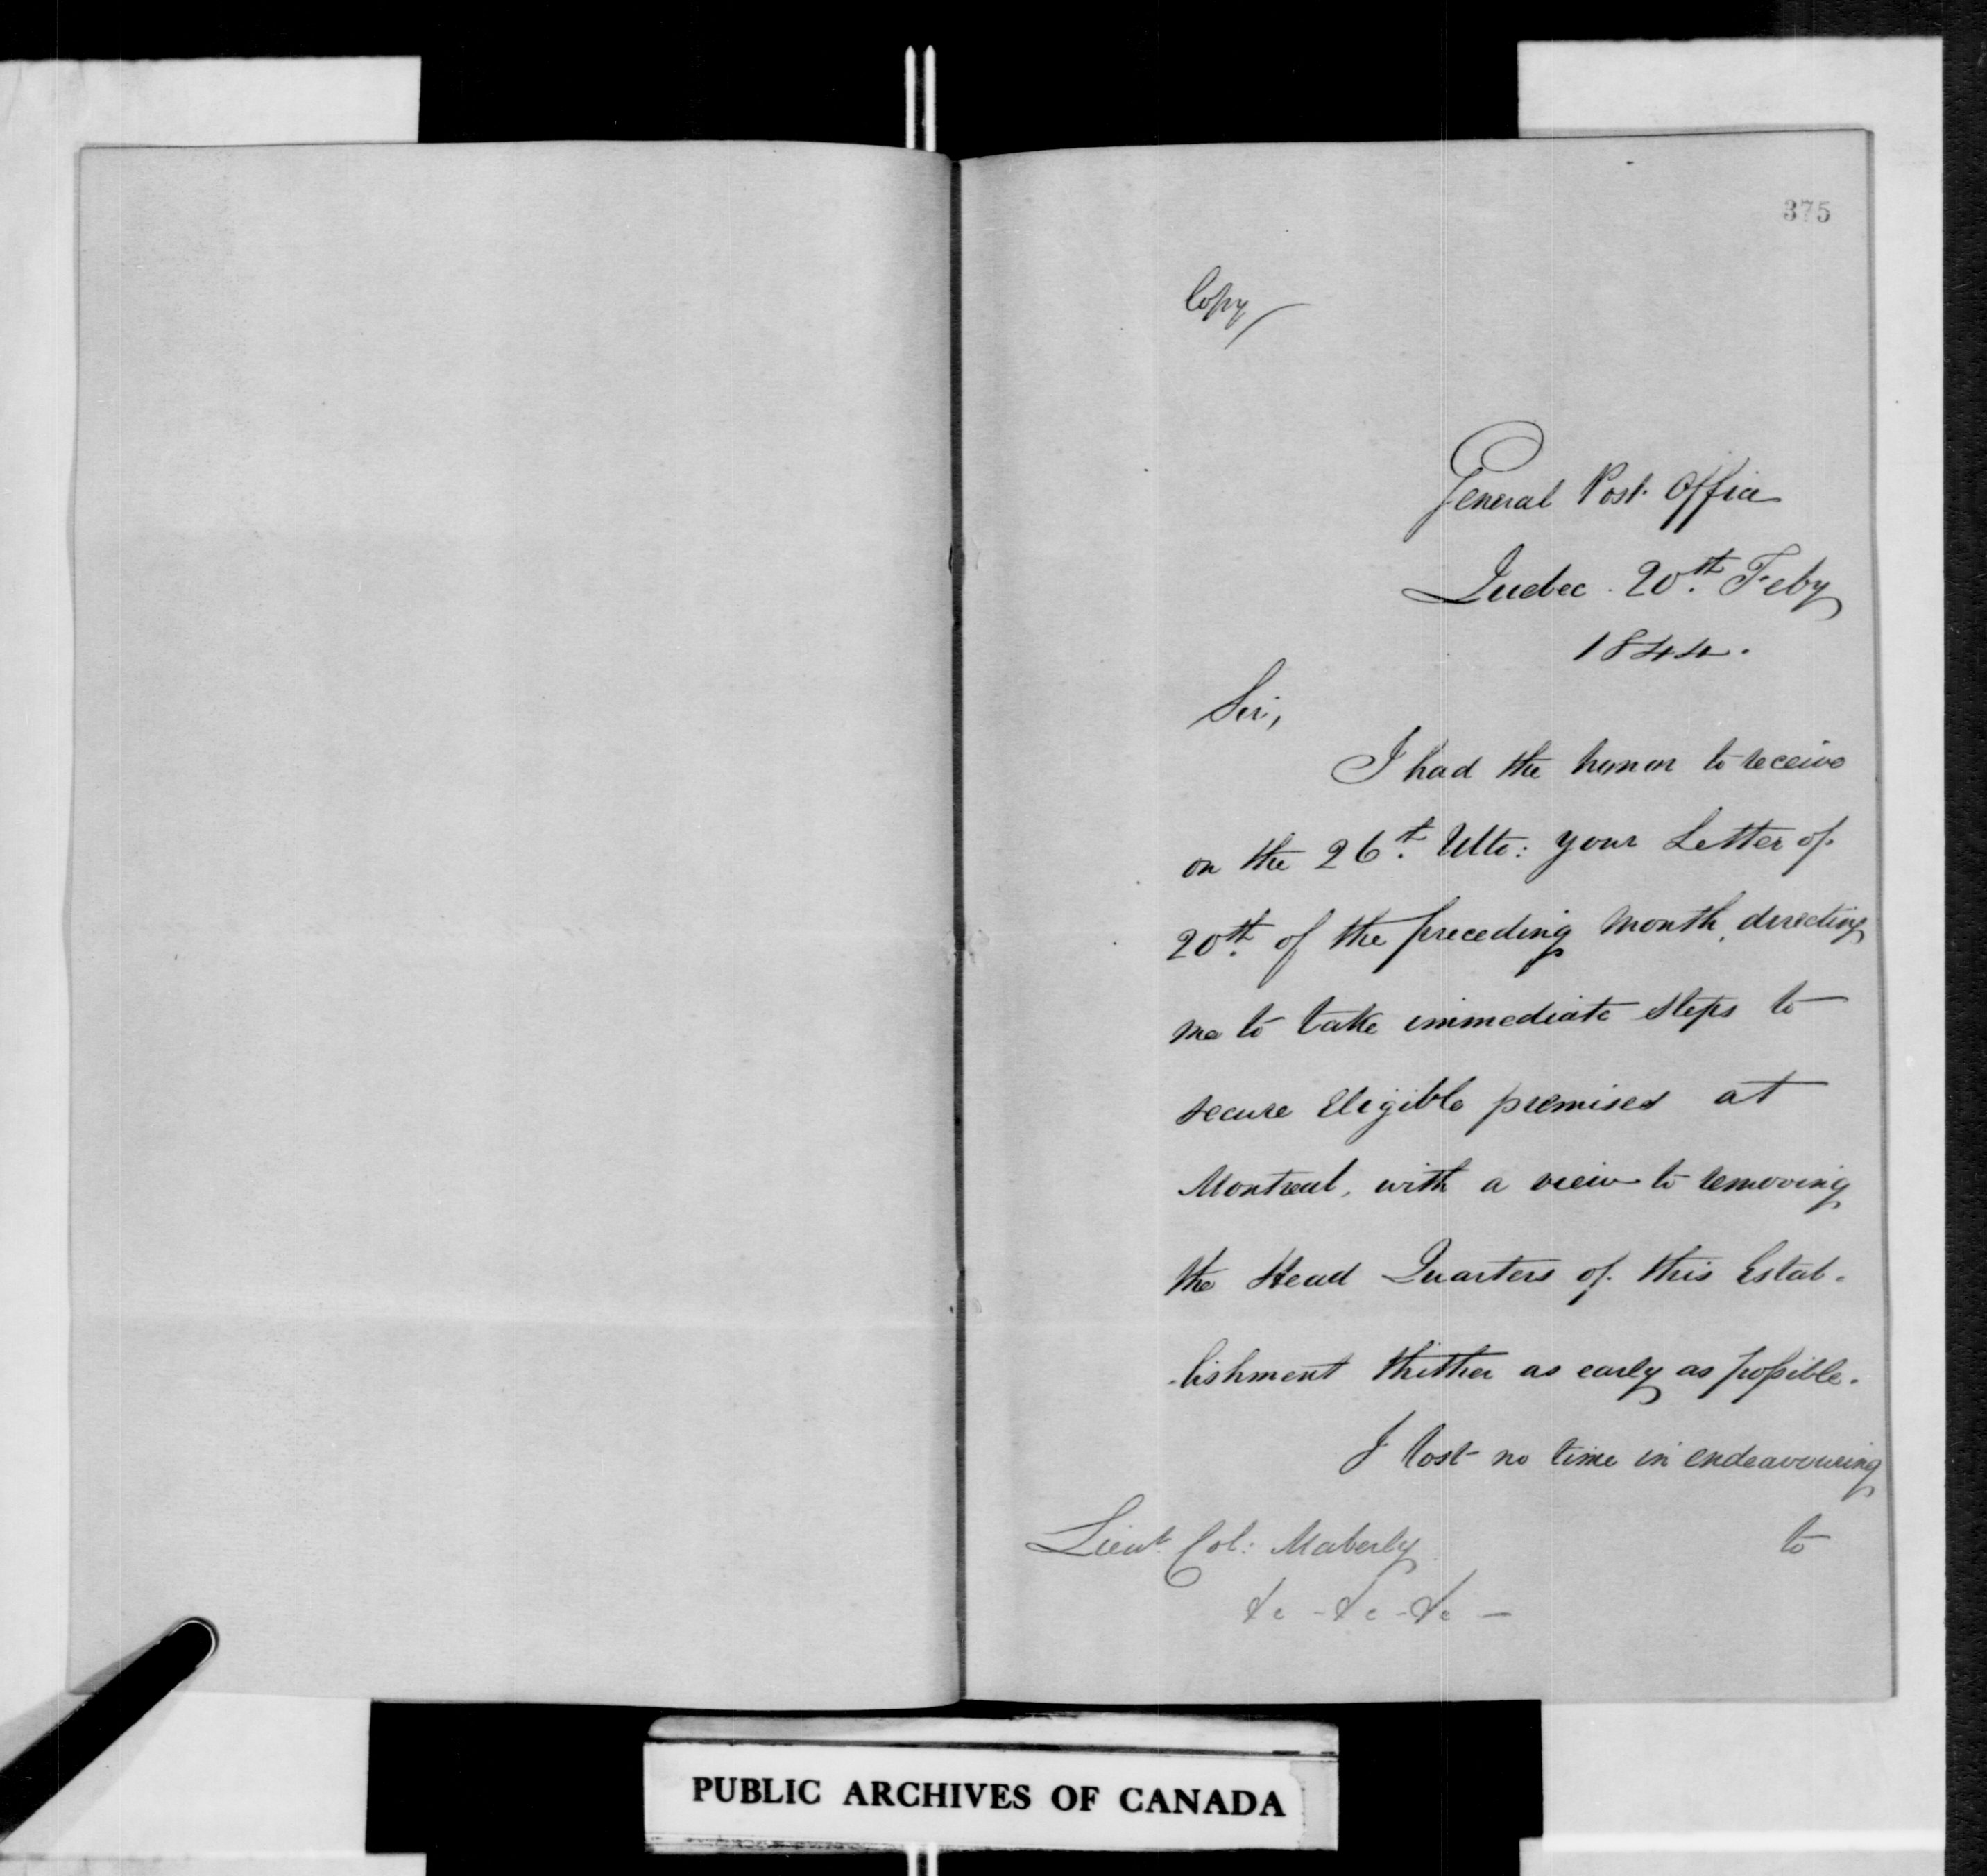 375
Copy/
General Post Office
Quebec. 20th. Feby
1844.
Sir,
I had the honor to receive
on the 26th. Ulto: your Letter of
20th. of the preceding month, directing
me to take immediate steps to
secure Eligible premises at
Montreal, with a view to removing
the Head Quarters of this Estab-
-lishment thither as early as possible.
I lost no time in endeavouring
Lieut. Col: Maberly
to
&c - &c - &c -
PUBLIC ARCHIVES OF CANADA